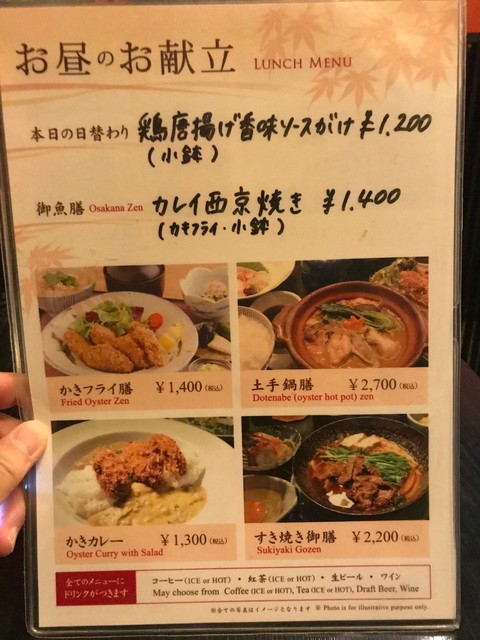 お昼のお献立 LUNCH MENU
本日の日替わり 鶏唐揚げ香味ソースがけ ¥1.200
(小鉢)
御魚膳 Osakana Zen カレイ西京焼き ¥1.400
(カキフライ・小鉢)
かきフライ膳 ¥1,400(税込)
Fried Oyster Zen
土手鍋膳 ¥2,700(税込)
Dotenabe (oyster hot pot) zen
かきカレー ¥1,300(税込)
Oyster Curry with Salad
すき焼き御膳 ¥2,200(税込)
Sukiyaki Gozen
全てのメニューに
ドリンクがつきます
コーヒー(ICE or HOT) ・ 紅茶(ICE or HOT) ・ 生ビール ・ ワイン
May choose from Coffee (ICE or HOT), Tea (ICE or HOT), Draft Beer, Wine
※全ての写真はイメージとなります ※ Photo is for illustrative purpose only.